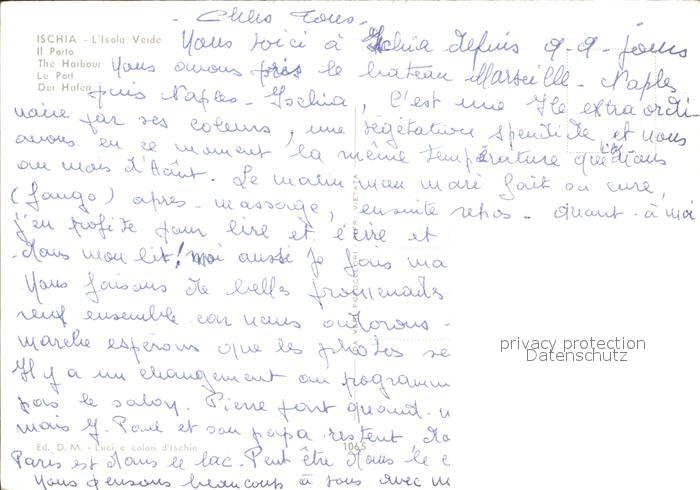 - Chers Tous -
ISCHIA - L'Isola Verde
Il Porto
The Harbour
Le Port
Der Hafen
Nous voici à Ischia depuis 9 - 9 - jours
Nous avons pris le bateau Marseille - Naples
puis Naples - Ischia, C'est une Ile extraordi
naire par ses coleurs, une végétation splendide et nous
avons en ce moment la même température que dans
au mois d'Août. Le matin mon mari fait sa cure,
(fango) après - massage, ensuite repos - quant - à moi
j'en profite pour lire et écrire et
- dans mon lit! moi aussi je fais ma
Nous faisons de belles promenades
neuf ensemble car nous adorons -
marche espérons que les photos se
Il y a un changement au programm
pas le salon. Pierre font quand -
mais J. Paul et son papa restent da
Ed. D. M. - Luci e colori d'Ischia
1065
Paris est dans le lac. Peut être dans le c
Nous pensons beaucoup à vous avec
VERA FOTOCOLORI
VIETATA
privacy protection
Datenschutz